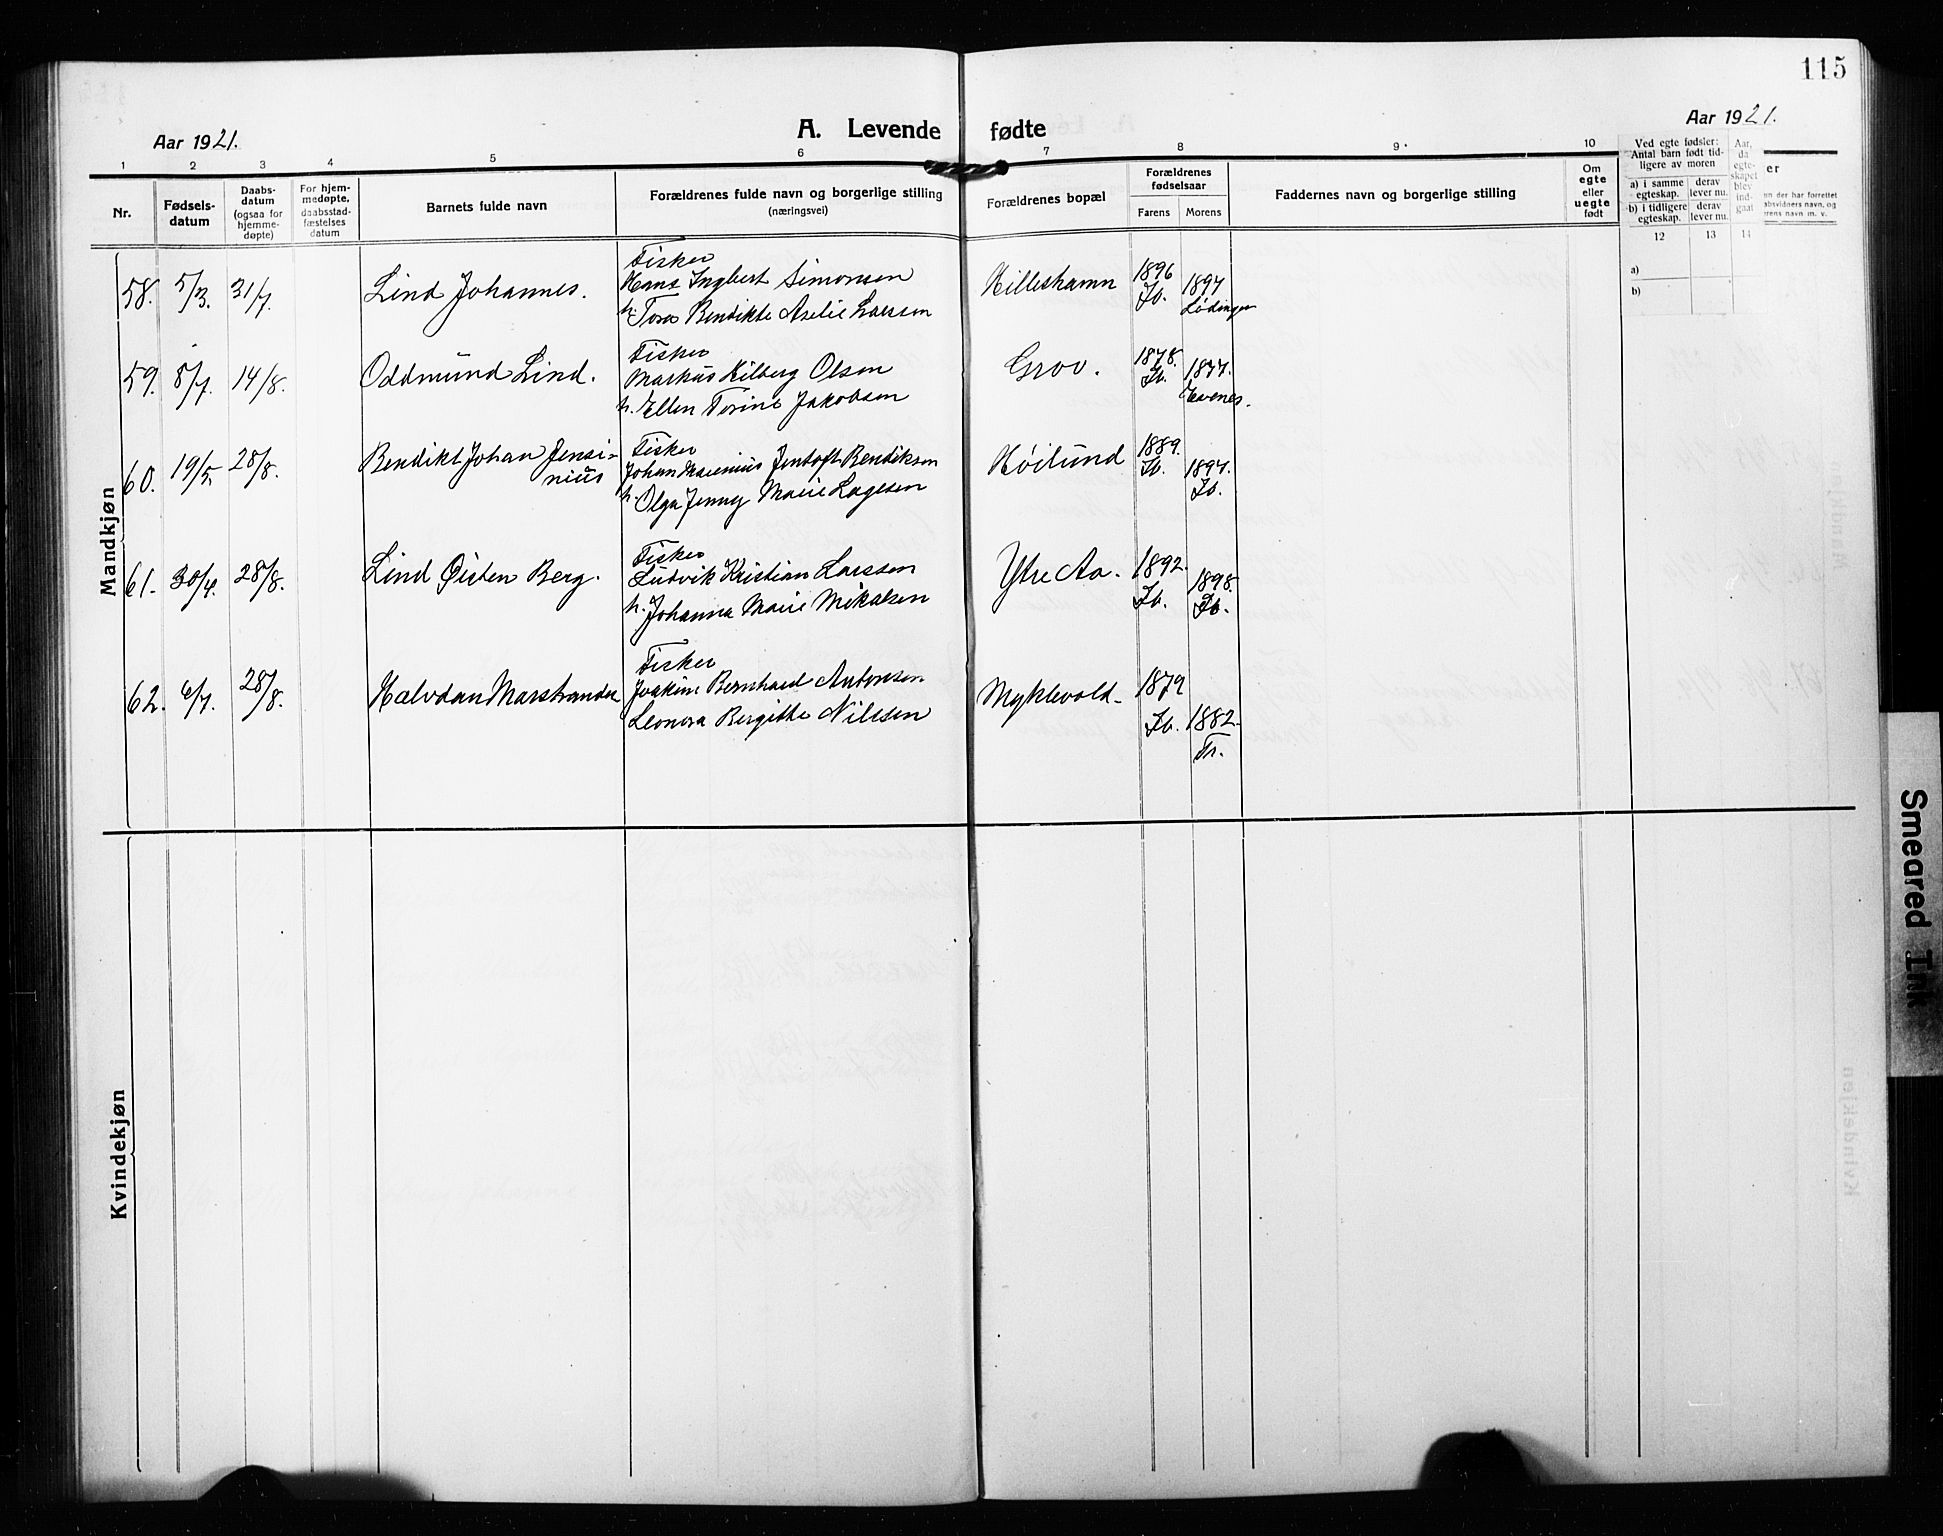 115
Aar 1921.
A. Levende fødte
Aar 1921.
1 2 3 4 5 6 7 8 9 10
Nr.
Fødsels-
datum
Daabs-
datum
(ogsaa for
hjemme-
døpte)
For hjem-
medøpte,
daabsstad-
fæstelses
datum
Barnets fulde navn
Forældrenes fulde navn og borgerlige stilling
(næringsvei)
Forældrenes bopæl
Forældrenes
fødselsaar
Farens Morens
Faddernes navn og borgerlige stilling
Om
egte
eller
uegte
født
Ved egte fødsler:
Antal barn født tid-
ligere av moren
a) i samme
egteskap.
derav
lever nu.
b) i tidligere
egteskap.
derav
lever nu.
Aar,
da
egte-
skapet
blev
ind-
gaat
12 13 14
a)
b)
er
n der har forrettet
absvidners navn, og
rens navn m. v.
Mandkjøn
58. 5/3. 31/7. Lind Johannes.
Fisker
Hans Ingbert Simonsen
h. Tora Bendikte Aselie Larssen
Hilleshamn
1896
Ib.
1897
Lødingen
59. 8/7. 14/8. Oddmund Lind.
Fisker
Markus Hilberg Olsen
h. Ellen Torine Jakobsen
Grov.
1878.
Ib.
1877.
Evenes.
60. 19/5. 28/8. Bendikt Johan Jensi-
nius
Fisker
Johan Marenius Jentoft Bendiksen
h. Olga Jenny Marie Lagesen
Høilund
1889.
Ib.
1897.
Ib.
61. 30/4. 28/8. Lind Øisten Berg.
Fisker
Ludvik Kristian Larssen
h. Johanna Marie Mikalsen
Ytre Aa.
1892.
Ib.
1898.
Ib.
62. 6/7. 28/8. Halvdan Marstrander
Fisker
Joakim Bernhard Antonsen
Leonora Bergitte Nilssen
Myklevold.
1879
Ib.
1882.
Tr.
Kvindekjøn
Smeared Ink